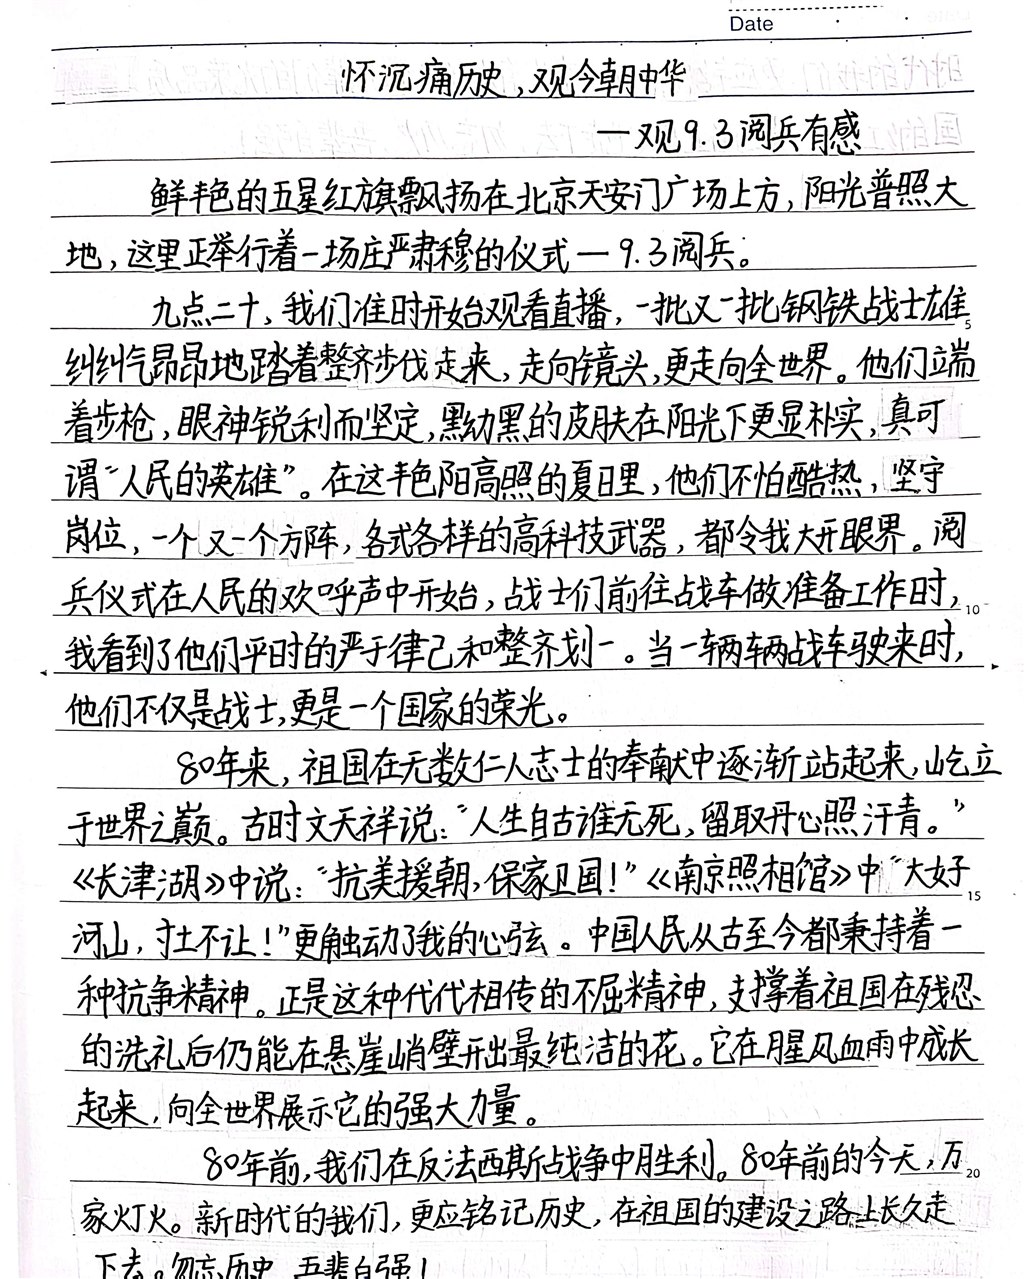 Date
怀沉痛历史，观今朝中华
—观9.3阅兵有感
鲜艳的五星红旗飘扬在北京天安门广场上方，阳光普照大
地，这里正举行着一场庄严肃穆的仪式—9.3阅兵。
九点二十，我们准时开始观看直播，一批又一批钢铁战士雄
5
纠纠气昂昂地踏着整齐步伐走来，走向镜头，更走向全世界。他们端
着步枪，眼神锐利而坚定，黝黑的皮肤在阳光下更显朴实，真可
谓“人民的英雄”。在这艳阳高照的夏日里，他们不怕酷热，坚守
岗位，一个又一个方阵，各式各样的高科技武器，都令我大开眼界。阅
兵仪式在人民的欢呼声中开始，战士们前往战车做准备工作时，
10
我看到了他们平时的严于律己和整齐划一。当一辆辆战车驶来时，
他们不仅是战士，更是一个国家的荣光。
80年来，祖国在无数仁人志士的奉献中逐渐站起来，屹立
于世界之巅。古时文天祥说：“人生自古谁无死，留取丹心照汗青。”
《长津湖》中说：“抗美援朝，保家卫国！”《南京照相馆》中“大好
15
河山，寸土不让！”更触动了我的心弦。中国人民从古至今都秉持着一
种抗争精神。正是这种代代相传的不屈精神，支撑着祖国在残忍
的洗礼后仍能在悬崖峭壁开出最纯洁的花。它在腥风血雨中成长
起来，向全世界展示它的强大力量。
80年前，我们在反法西斯战争中胜利。80年前的今天，万
20
家灯火。新时代的我们，更应铭记历史，在祖国的建设之路上长久走
下去。勿忘历史，吾辈自强！